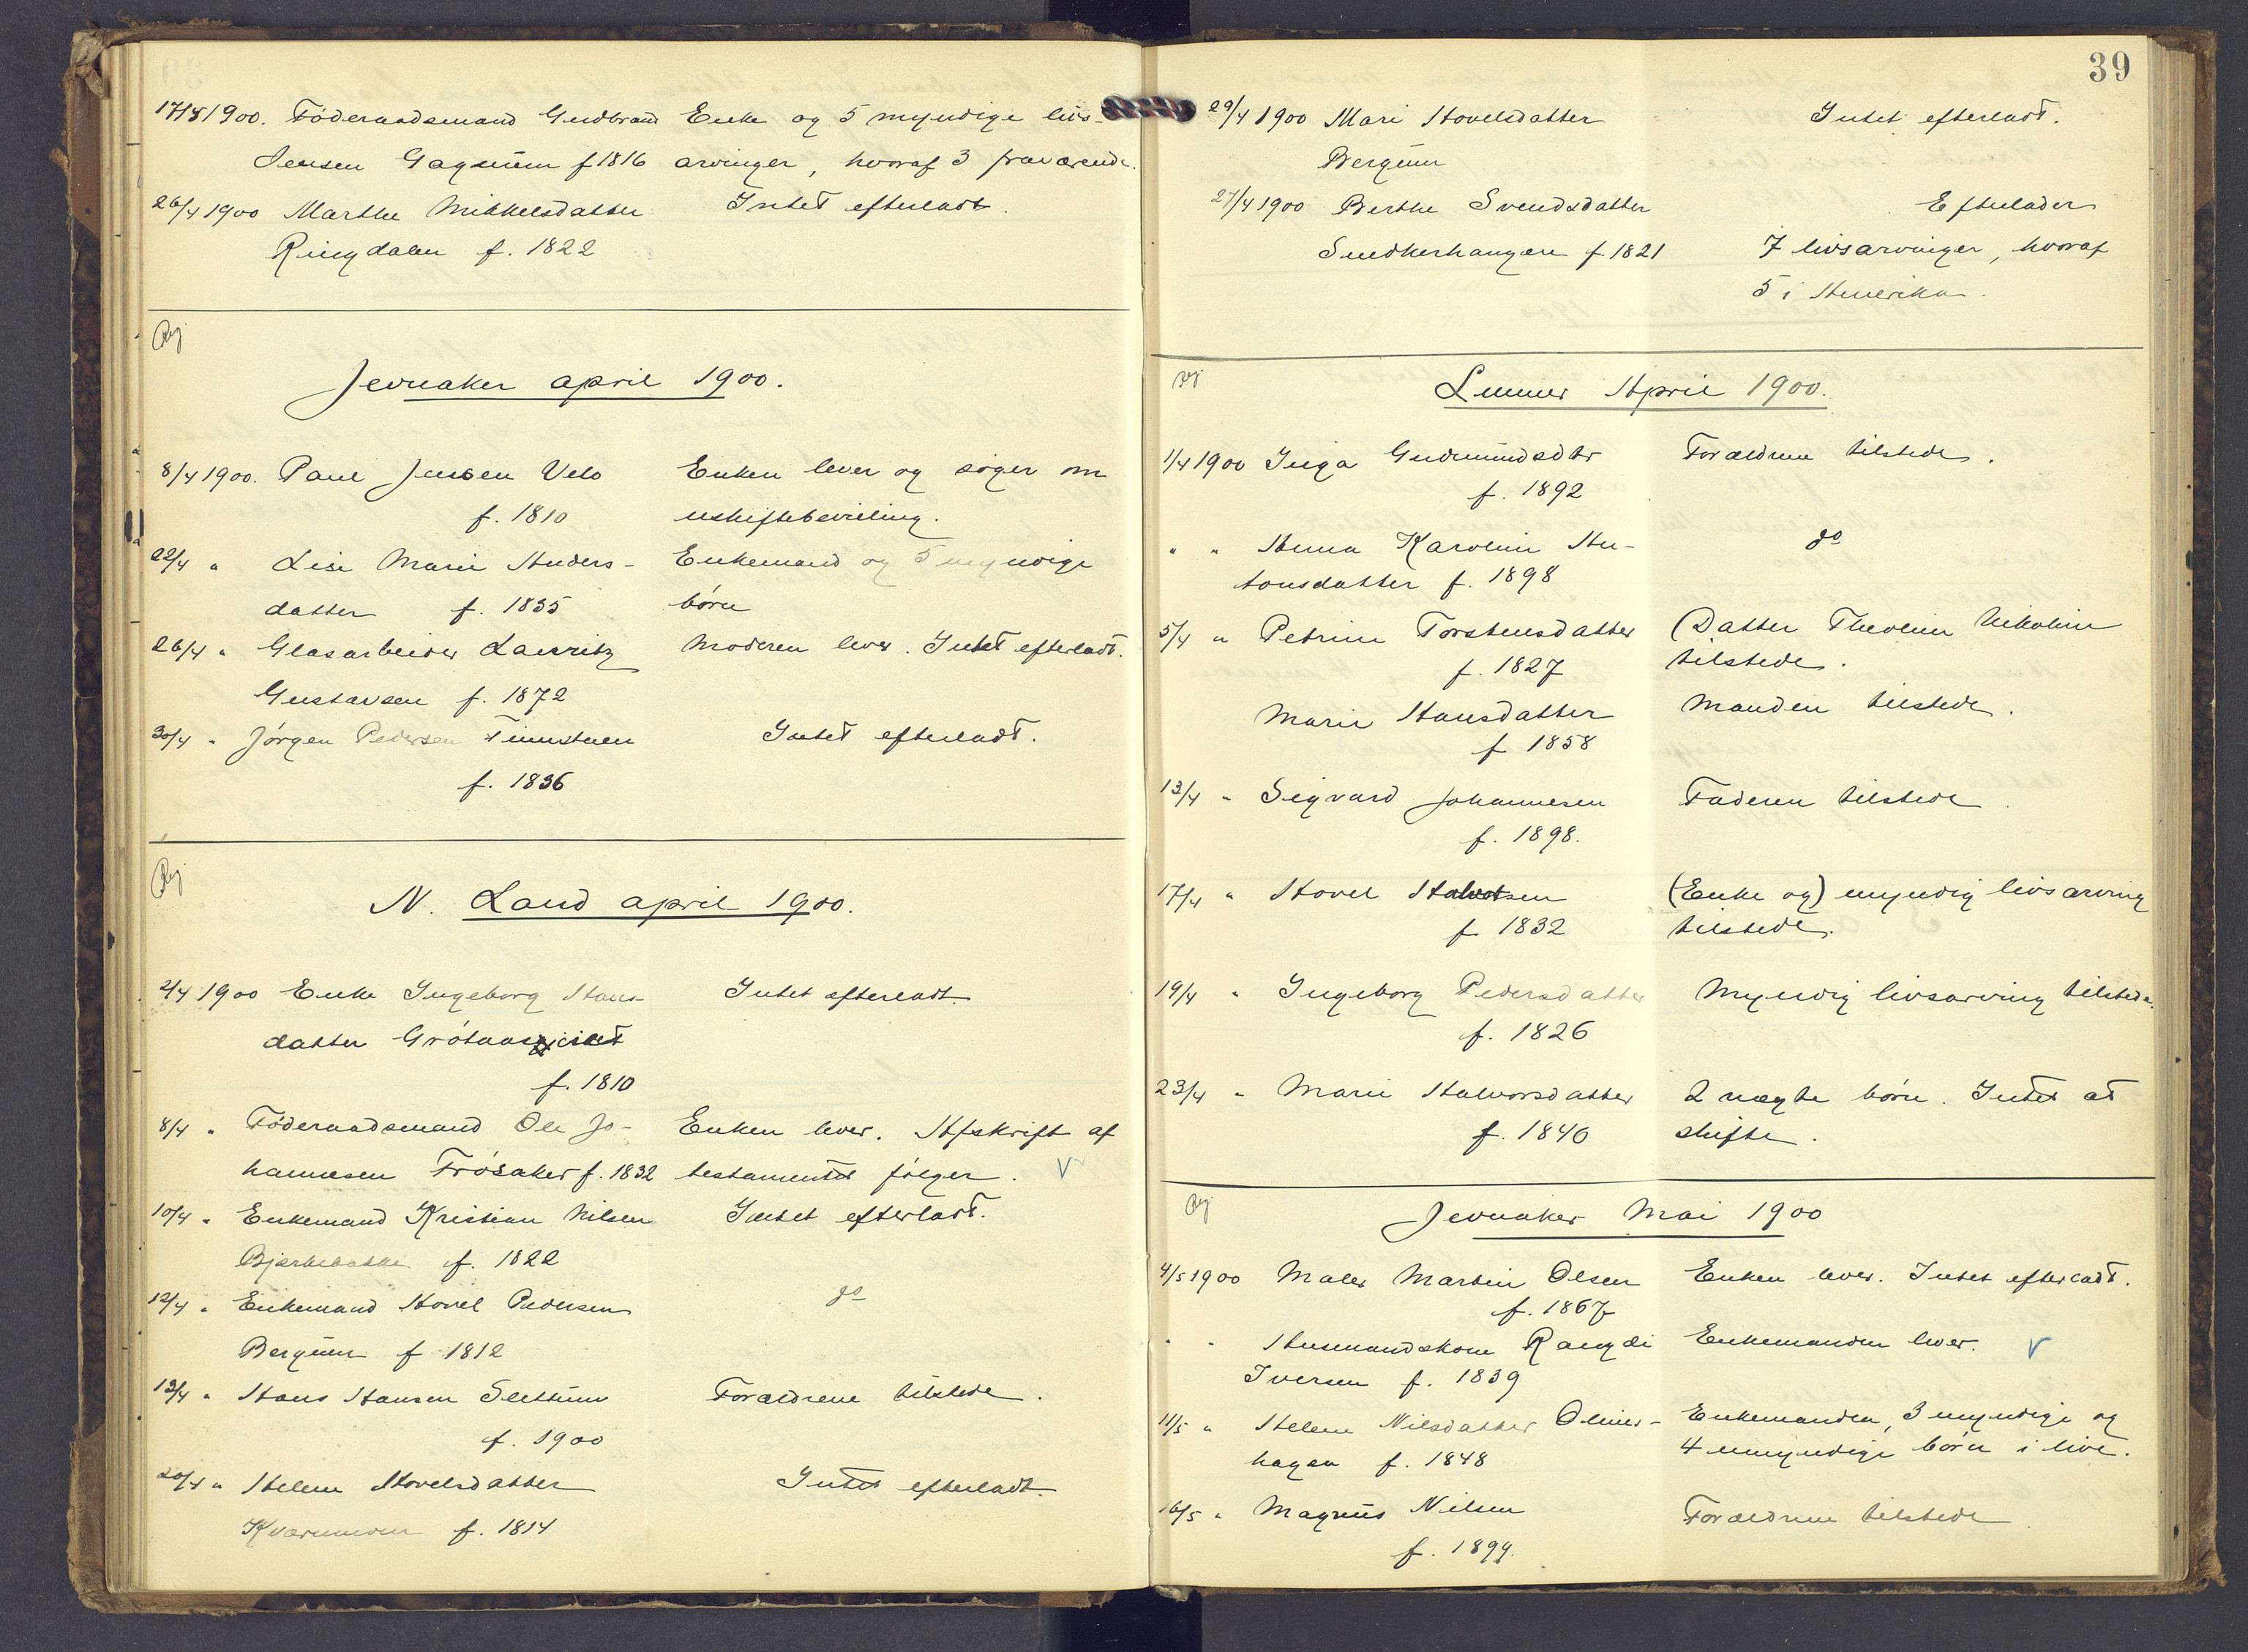 17/4 1900. Föderaadsmand Gudbrand Enke og 5 myndige livs-
Jensen Gagnum f 1816 arvinger, hvoraf 3 fraværende.
26/4 1900 Marthe Mikkelsdatter Intet efterladt.
Ringdalen f. 1822
Reg
Jevnaker april 1900.
8/4 1900. Paul Jensen Velo Enken lever og søger om
f. 1810 uskiftebevilling.
22/4 " Lise Marie Anders- Enkemand og 5 myndige
datter f. 1835 børn
26/4 " Glasarbeider Lauritz Moderen lever. Intet efterladt.
Gustavsen f. 1872
30/4 " Jørgen Pedersen Timstuen Intet efterladt.
f. 1836
Reg
N. Land april 1900.
2/4 1900 Enke Ingeborg Hans- Intet efterladt
datter
f. 1810
8/4 " Föderaadsmand Ole Jo- Enken lever. Afskrift af
hannesen Frøsaker f. 1832 testamentet følger. V
10/4 " Enkemand Kristian Nilsen Intet efterladt.
Bjerkebakke f. 1822
12/4 " Enkemand Hovel Pedersen do
Bergum f 1812
13/4 " Hans Hansen Slettum Forældrene tilstede.
f. 1900
20/4 " Helene Hovelsdatter Intet efterladt.
Kværnmoen f. 1814
39
29/4 1900 Mari Hovelsdatter Intet efterladt.
Bergum
27/4 1900 Berthe Svendsdatter Efterlader
Snedkerhaugen f. 1821 7 livsarvinger, hvoraf
5 i Amerika.
Reg
Lunner April 1900.
1/4 1900 Inga Gudmundsdtr Forældrene tilstede.
f. 1892
" " Anna Karoline An- do
tonsdatter f. 1898
5/4 " Petrine Torstensdatter (Datter Theoline Nikoline
f. 1827 tilstede.
Marie Hansdatter Manden tilstede.
f 1858
13/4 " Sigvard Johannesen Faderen tilstede
f. 1898.
17/4 " Hovel Halvorsen (Enke og) myndig livsarving
f 1832 tilstede.
19/4 " Ingeborg Pedersdatter Myndig livsarving tilstede.
f. 1826
23/4 " Marie Halvorsdatter 2 uægte børn. Intet at
f. 1840 skifte.
Reg
Jevnaker Mai 1900
4/5 1900 Maler Martin Olsen Enken lever. Intet efterladt.
f. 1867
" " Husmandskone Rangdi Enkemanden lever. V
Iversen f. 1839
11/5 " Helene Nilsdatter Olimes- Enkemanden, 3 myndige og
hagen f. 1848 4 umyndige børn i live.
16/5 " Magnus Nilsen Forældrene tilstede
f. 1899.